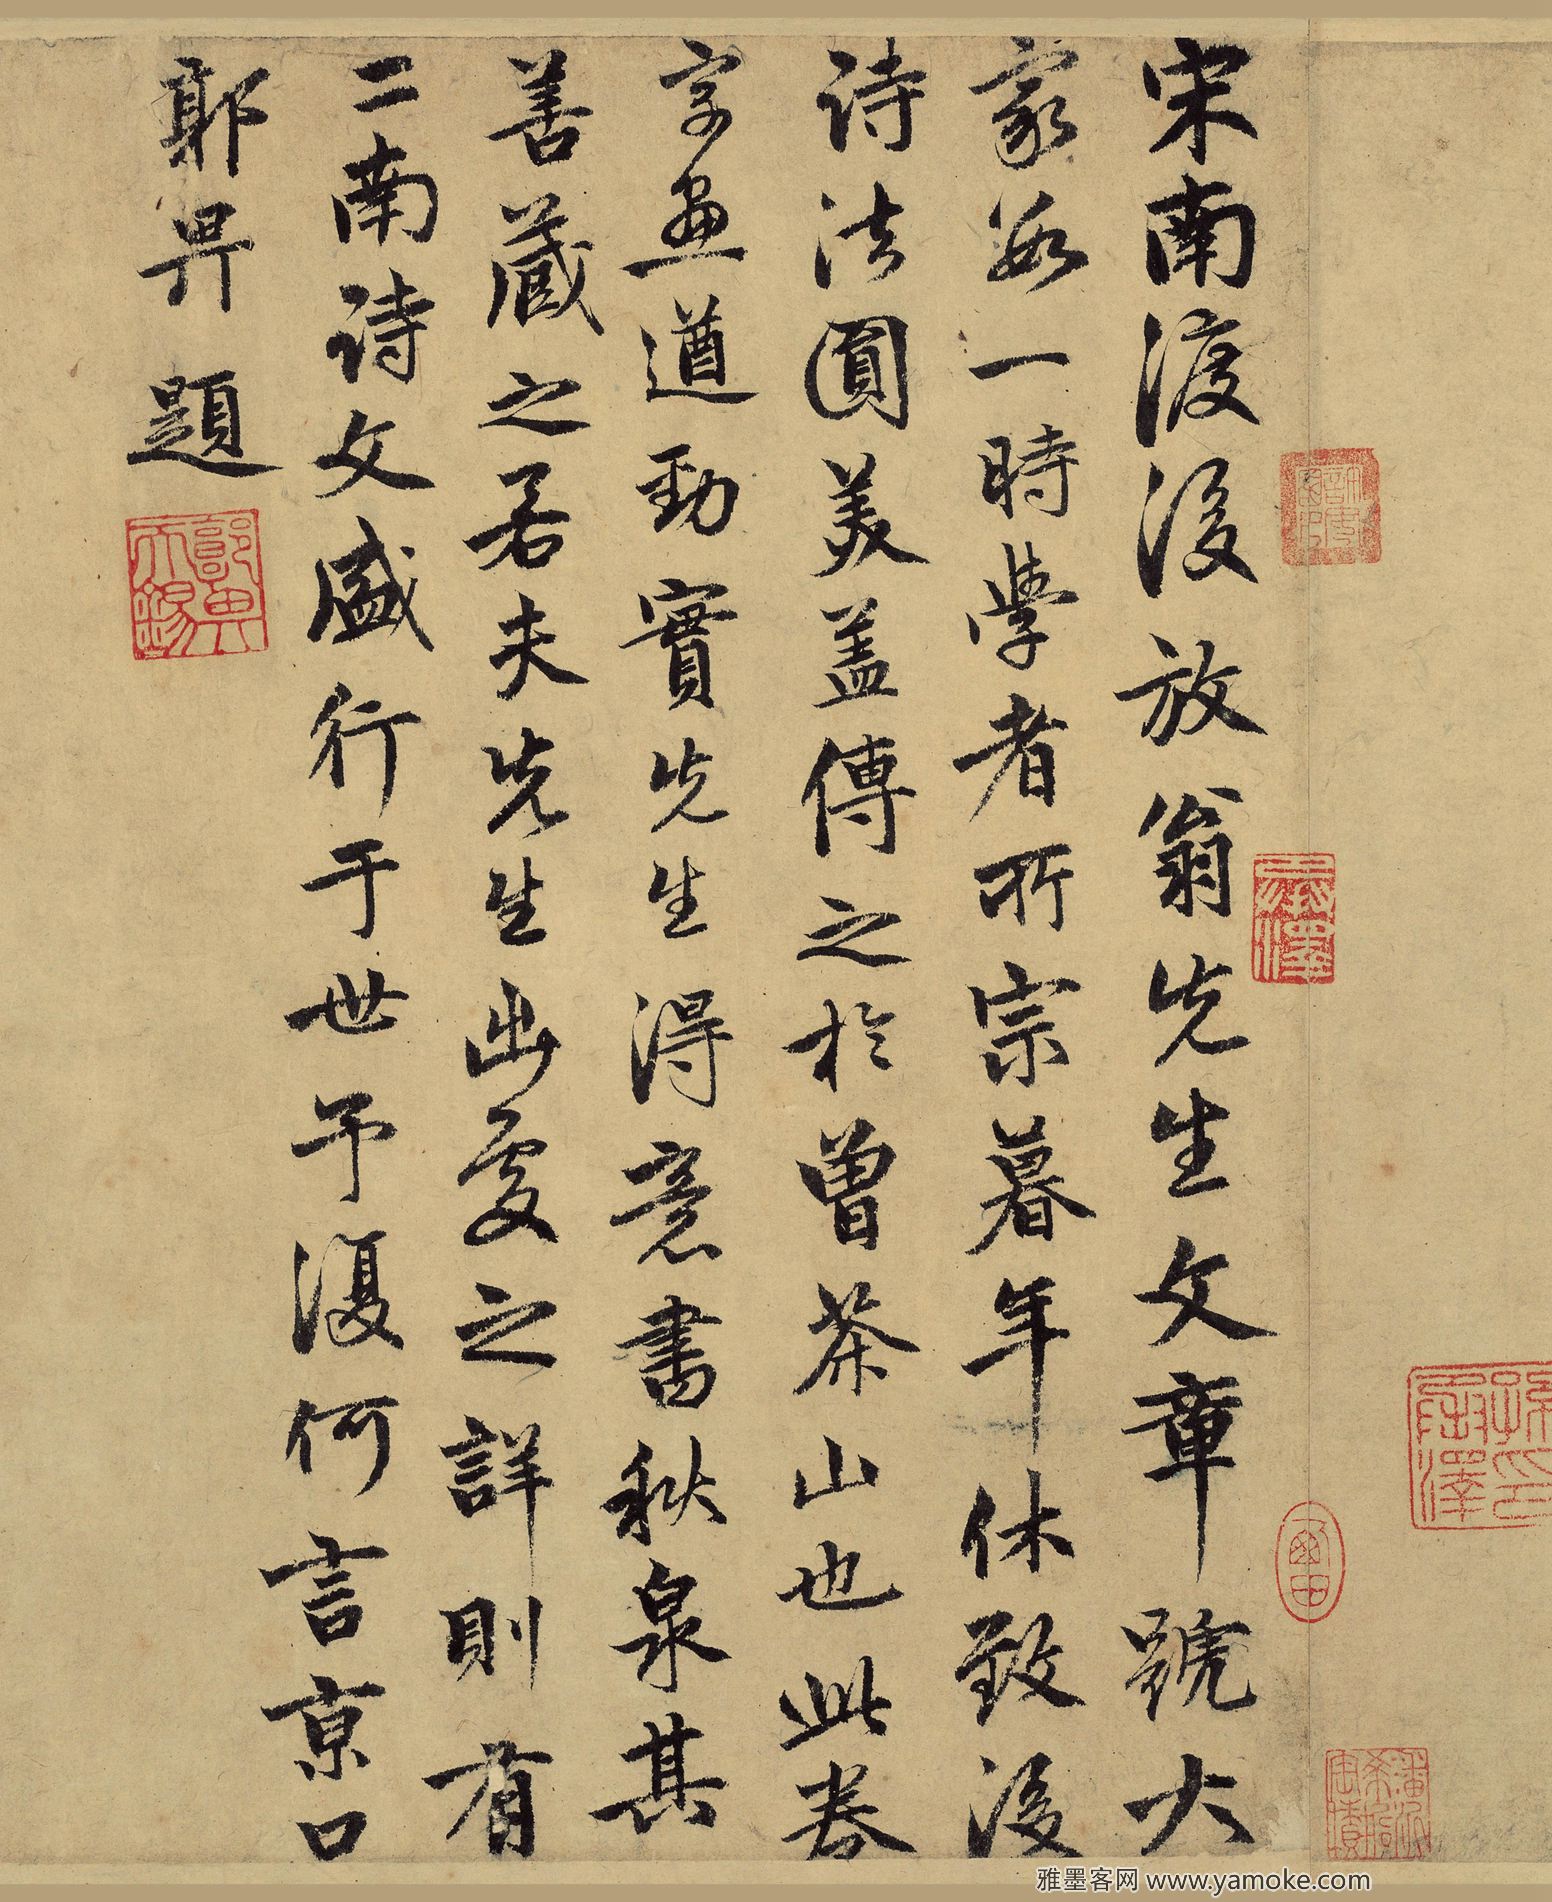 宋南渡後放翁先生文章號大
家為一時學者所宗暮年休致後
詩法圓美蓋傳之於曾茶山也此卷
字畫遒勁實先生得意書秋泉其
善藏之若夫先生出處之詳則有
二南詩文盛行于世予復何言京口
郭畀題
雅墨客网 www.yamoke.com